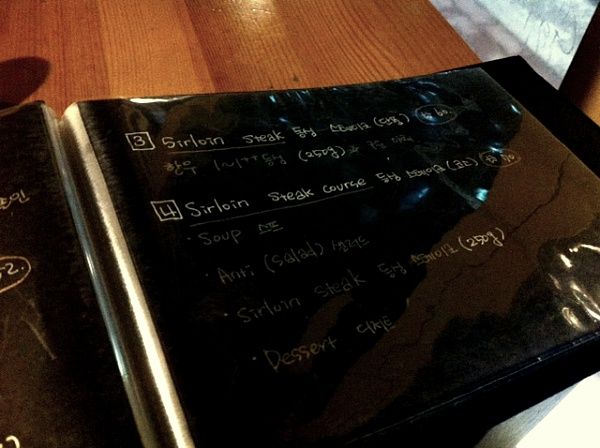 3 Sirloin steak 등심 스테이크 (단품)
한우 1~1++ 등심 (250g)
4 Sirloin steak course 등심 스테이크 (코스)
· Soup 스프
· Anti (Salad) 샐러드
· Sirloin steak 등심 스테이크 (250g)
· Dessert 디저트